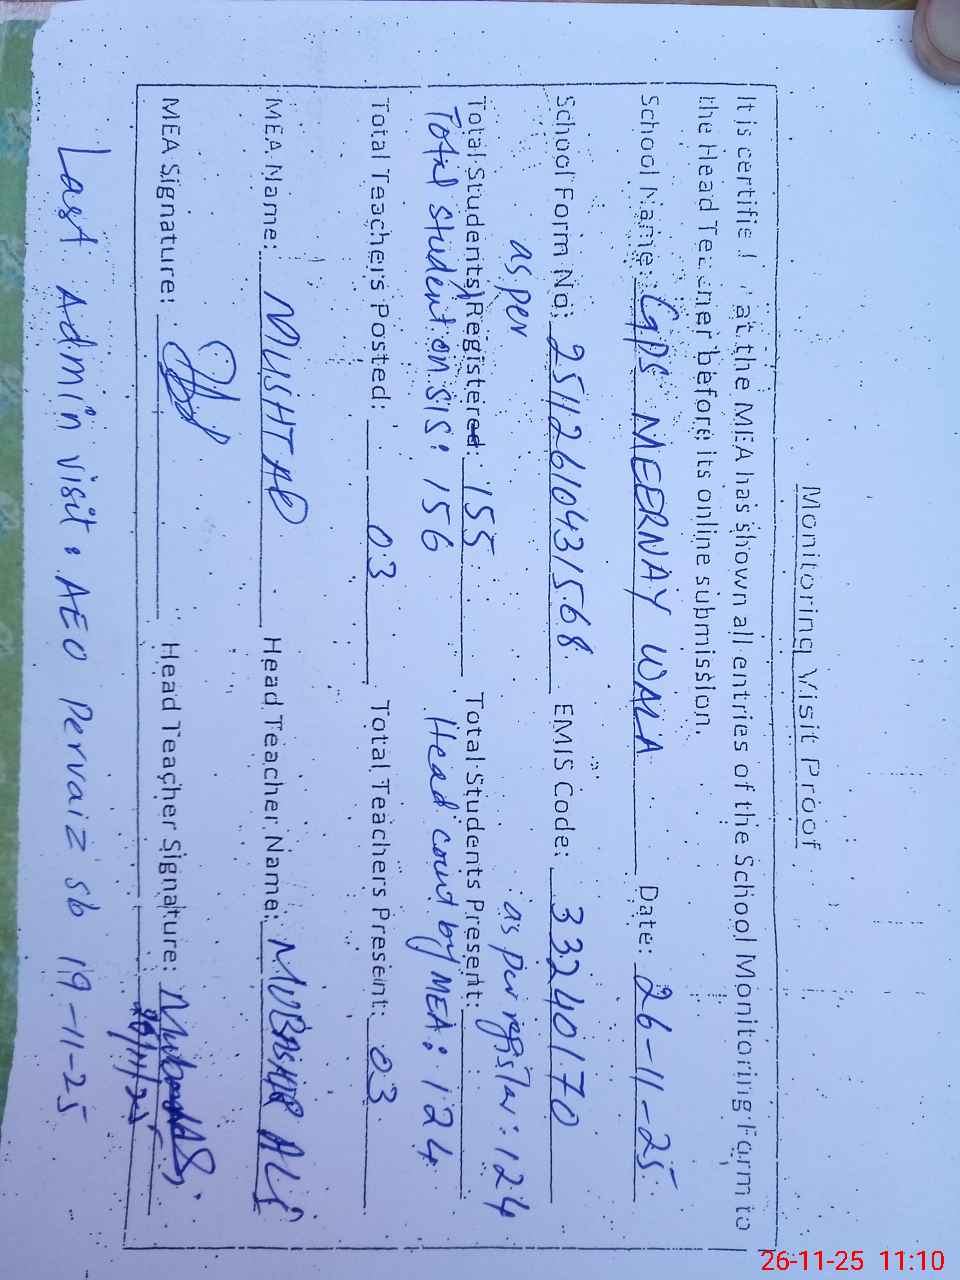 Monitoring Visit Proof
It is certified that the MEA has shown all entries of the School Monitoring Form to
the Head Teacher before its online submission.
School Name: GPS MEERNAY WALA Date: 26-11-25
School Form No: 25112610431568 EMIS Code: 33240170
as per as per register: 124
Total Students Registered: 155 Total Students Present:
Total student on SIS: 156 Head count by MEA: 124
Total Teachers Posted: 03 Total Teachers Present: 03
MEA Name: MUSHTAQ Head Teacher Name: MUBASHIR ALI
MEA Signature: Head Teacher Signature:
26/11/25
Last Admin visit: AEO Pervaiz sb 19-11-25
26-11-25 11:10